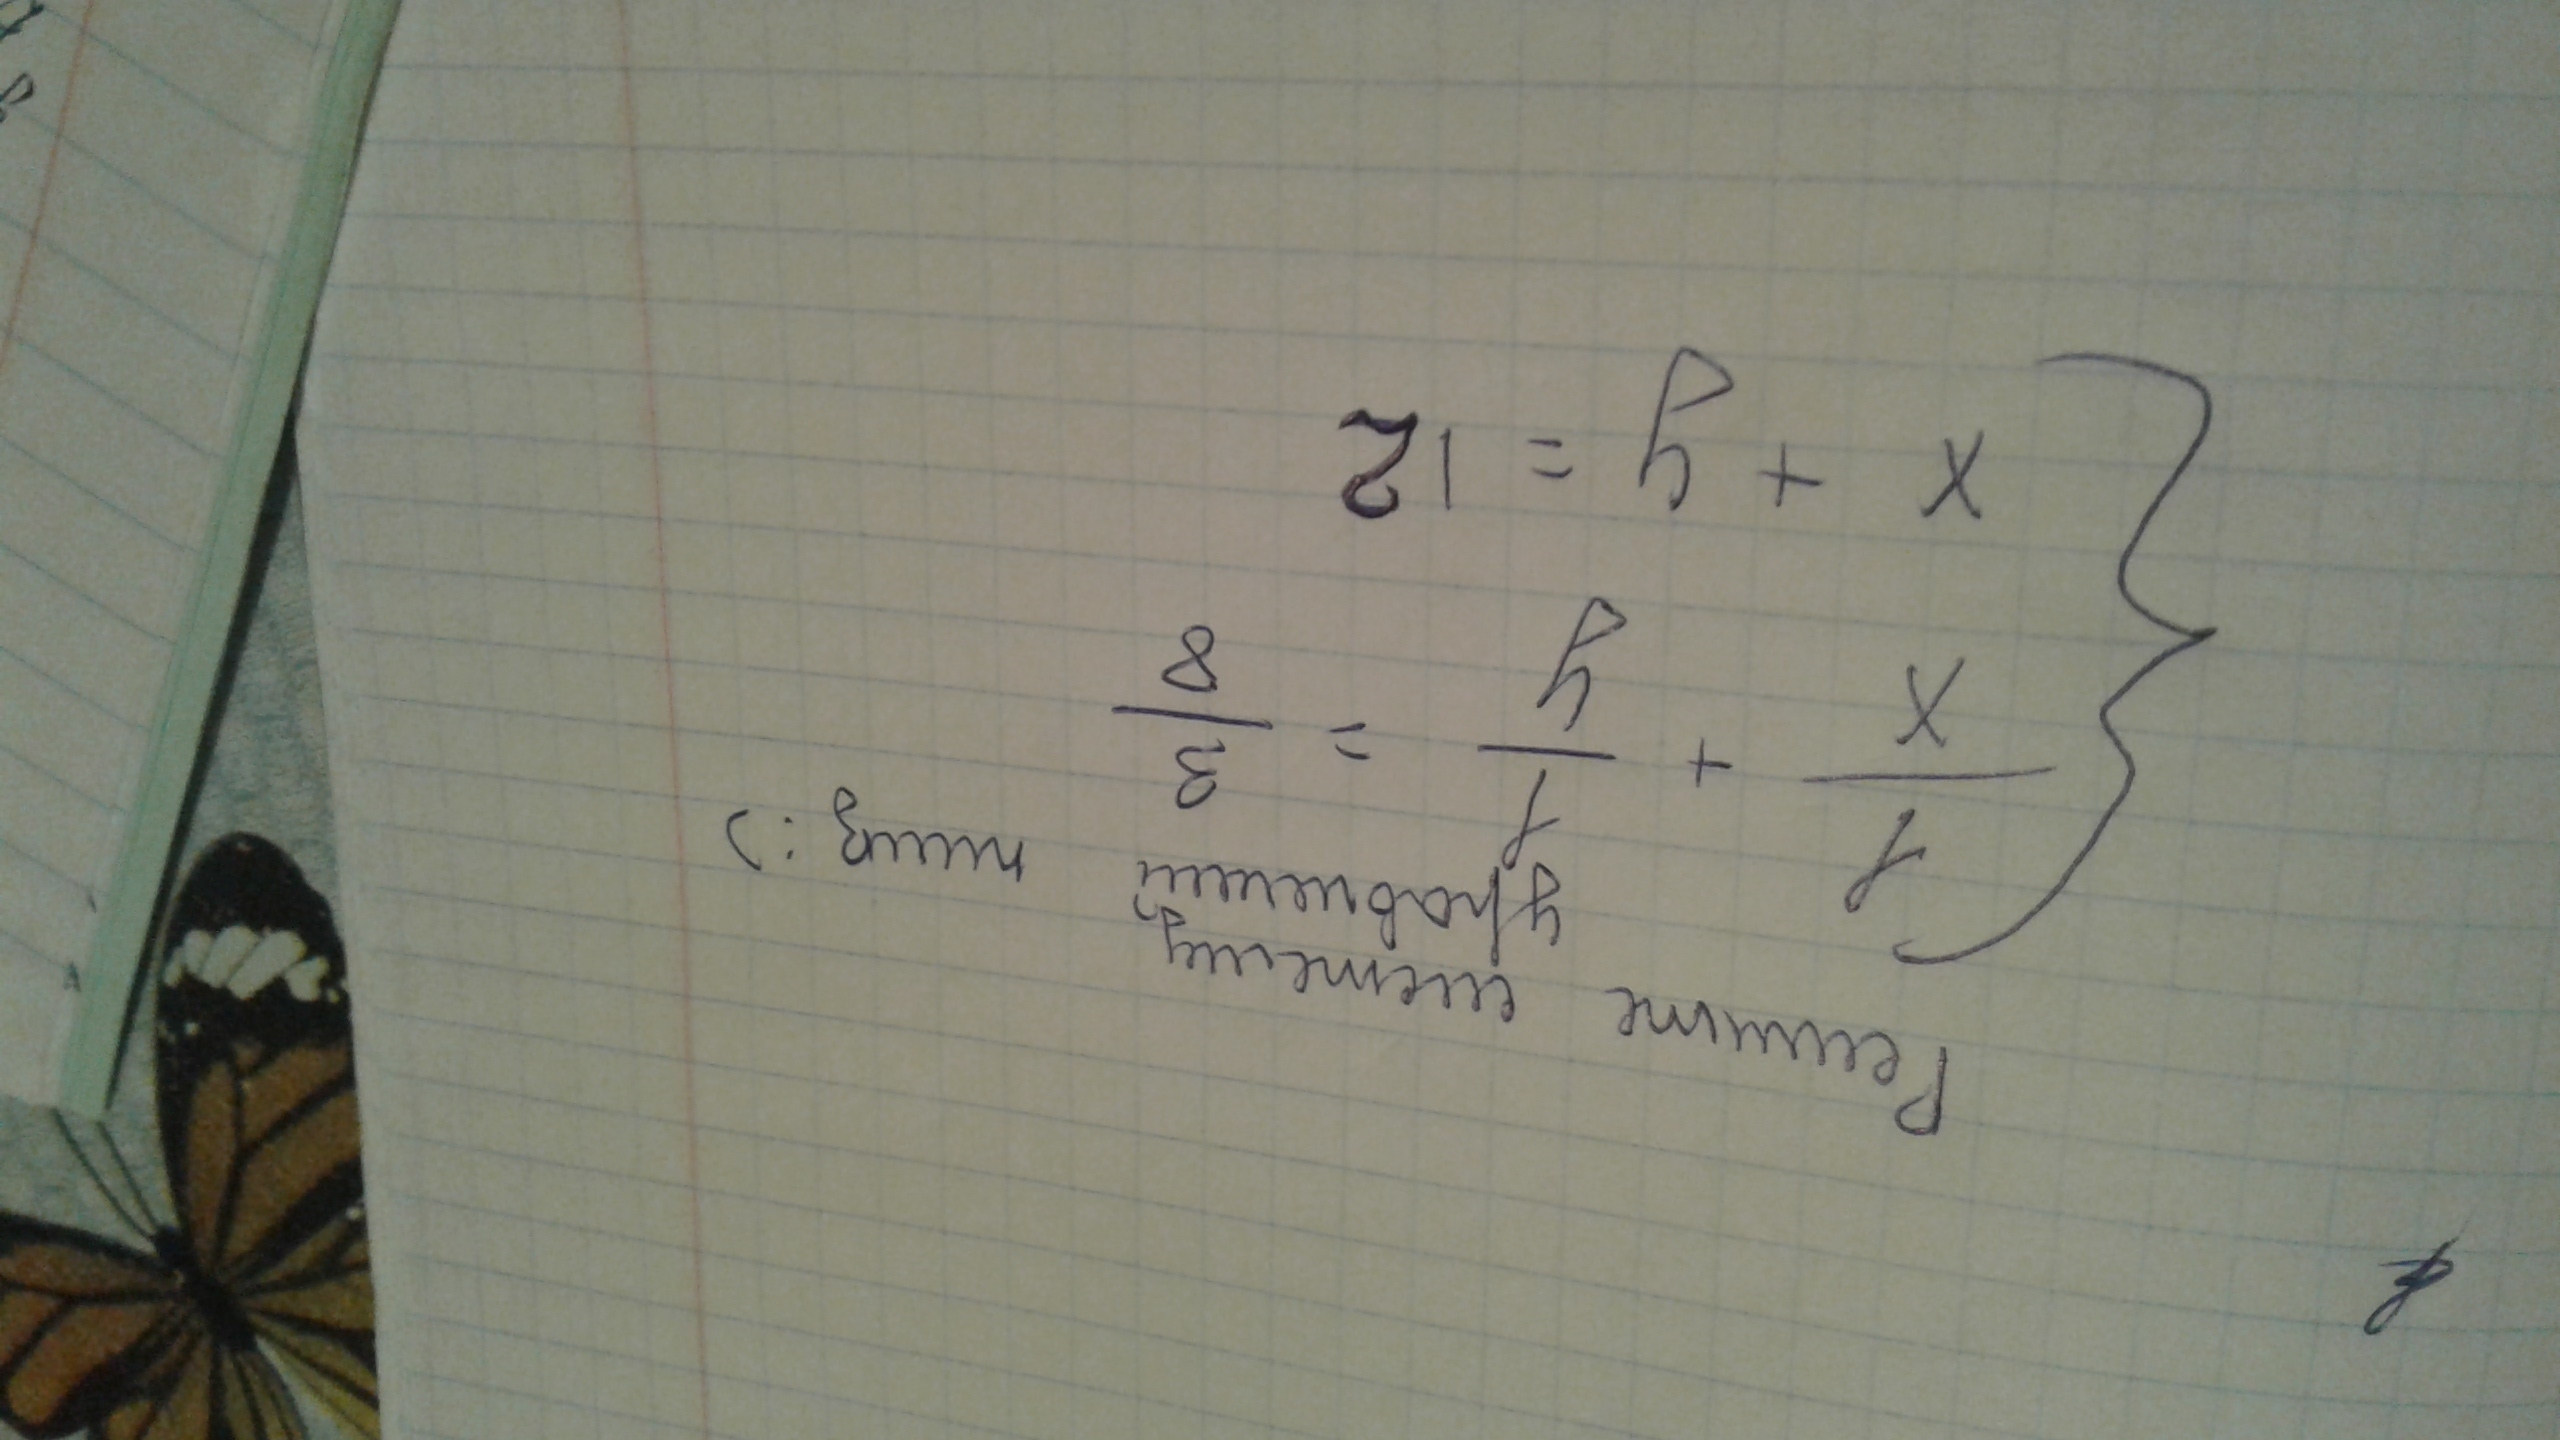 Решите систему
уравнений
1/x + 1/y = 3/8
x + y = 12